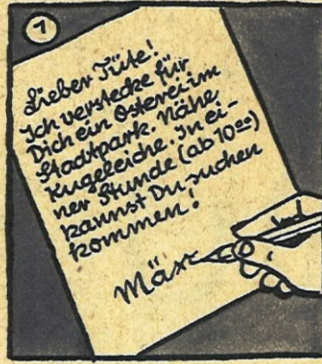 1
Lieber Tüte!
Ich verstecke für
Dich ein Osterei im
Stadtpark. Nähe
Kugeleiche. In ei-
ner Stunde (ab 10⁰⁰)
kannst Du suchen
kommen!
Mäxc